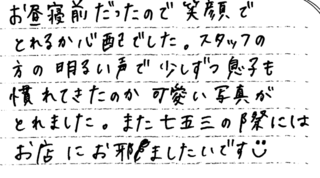 お昼寝前だったので笑顔で
とれるか心配でした。スタッフの
方の明るい声で少しずつ息子も
慣れてきたのか可愛い写真が
とれました。また七五三の際には
お店にお邪ましたいです